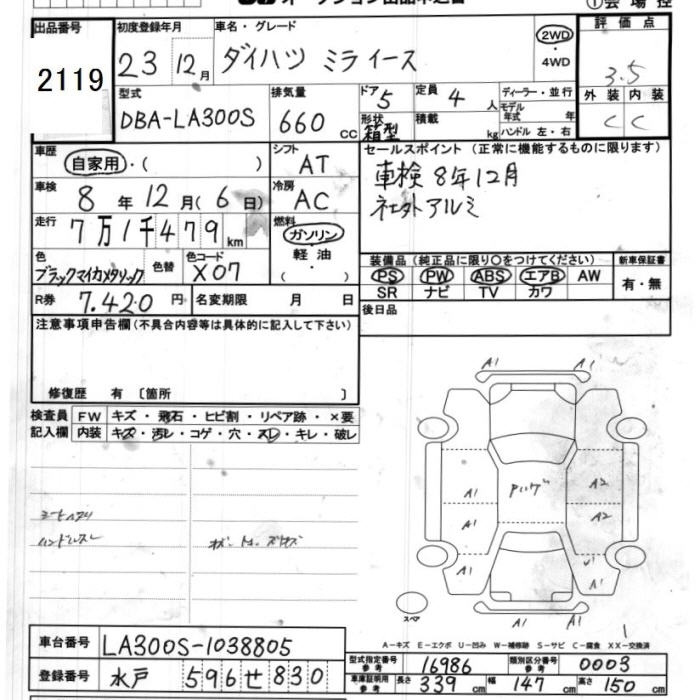 ①会場控
出品番号
2119
初度登録年月
23 12月
車名・グレード
ダイハツ ミライース
2WD
・
4WD
評価点
3.5
外装 内装
C C
型式
DBA-LA300S
排気量
660 cc
ドア 5
形状 箱型
定員 4 人
積載 kg
ディーラー・並行
モデル年式 年
ハンドル 左・右
車歴
自家用・( )
シフト
AT
セールスポイント (正常に機能するものに限ります)
車検 8年12月
社外アルミ
車検
8年12月(6日)
冷房
AC
走行
7万1千479km
燃料
ガソリン
・
軽油
・
( )
色
ブラックマイカメタリック
色替
色コード
X07
装備品 (純正品に限り○をつけてください)
PS PW ABS エアB AW
SR ナビ TV カワ
新車保証書
有・無
R券 7.420円
名変期限 月 日
後日品
注意事項申告欄 (不具合内容等は具体的に記入して下さい)
修復歴 有 〔箇所 〕
検査員記入欄
FW キズ・飛石・ヒビ割・リペア跡・×要
内装 キズ・汚レ・コゲ・穴・スレ・キレ・破レ
シートヘタリ
ハンドルスレ
A1 A1
A1 A2
A1 A2
A1 A1
A1 A1
スペア
1
A-キズ E-エクボ U-凹み W-補修跡 S-サビ C-腐食 XX-交換済
車台番号 LA300S-1038805
登録番号 水戸 596 せ 830
型式指定番号 参考 16986
類別区分番号 参考 0003
車庫証明用 参考 長さ 339 cm 幅 147 cm 高さ 150 cm